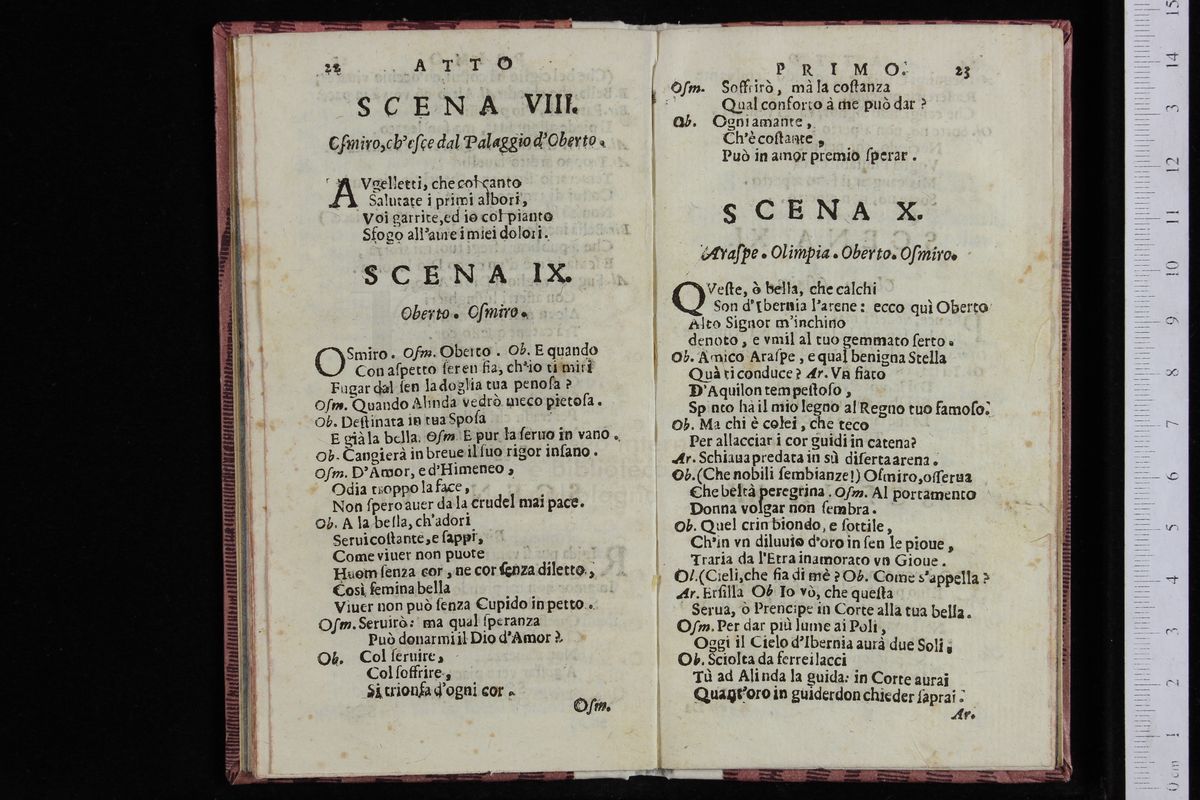 22 ATTO
SCENA VIII.
Oſmiro, ch'eſce dal Palaggio d'Oberto.
AVgelletti, che col canto
Salutate i primi albori,
Voi garrite, ed io col pianto
Sfogo all'aure i miei dolori.
SCENA IX.
Oberto. Oſmiro.
OSmiro. Oſm. Oberto. Ob. E quando
Con aſpetto ſeren fia, ch'io ti miri
Fugar dal ſen la doglia tua penoſa?
Oſm. Quando Alinda vedrò meco pietoſa.
Ob. Deſtinata in tua Spoſa
E già la bella. Oſm E pur la ſeruo in vano.
Ob. Cangierà in breue il ſuo rigor inſano.
Oſm. D'Amor, e d'Himeneo,
Odia troppo la face,
Non ſpero auer da la crudel mai pace.
Ob. A la bella, ch'adori
Serui coſtante, e ſappi,
Come viuer non puote
Huom ſenza cor, ne cor ſenza diletto,
Così femina bella
Viuer non può ſenza Cupido in petto.
Oſm. Seruirò: ma qual ſperanza
Può donarmi il Dio d'Amor?
Ob. Col ſeruire,
Col ſoffrire,
Si trionfa d'ogni cor.
Oſm.
PRIMO. 23
Oſm. Soffrirò, mà la coſtanza
Qual conforto à me può dar?
Ob. Ogni amante,
Ch'è coſtante,
Può in amor premio ſperar.
SCENA X.
Araſpe. Olimpia. Oberto. Oſmiro.
QVeſte, ò bella, che calchi
Son d'Ibernia l'arene: ecco quì Oberto
Alto Signor m'inchino
denoto, e vmil al tuo gemmato ſerto.
Ob. Amico Araſpe, e qual benigna Stella
Quà ti conduce? Ar. Vn fiato
D'Aquilon tempeſtoſo,
Sp nto hà il mio legno al Regno tuo famoſo.
Ob. Ma chi è colei, che teco
Per allacciar i cor guidi in catena?
Ar. Schiaua predata in sù diſerta arena.
Ob. (Che nobili ſembianze!) Oſmiro, oſſerua
Che beltà peregrina. Oſm. Al portamento
Donna volgar non ſembra.
Ob. Quel crin biondo, e ſottile,
Ch'in vn diluuio d'oro in ſen le pioue,
Traria da l'Etra inamorato vn Gioue.
Ol. (Cieli, che fia di mè? Ob. Come s'appella?
Ar. Erſilla Ob Io vò, che queſta
Serua, ò Prencipe in Corte alla tua bella.
Oſm. Per dar più lume ai Poli,
Oggi il Cielo d'Ibernia aurà due Soli.
Ob. Sciolta da ferrei lacci
Tù ad Alinda la guida: in Corte aurai
Quant'oro in guiderdon chieder ſaprai.
Ar.